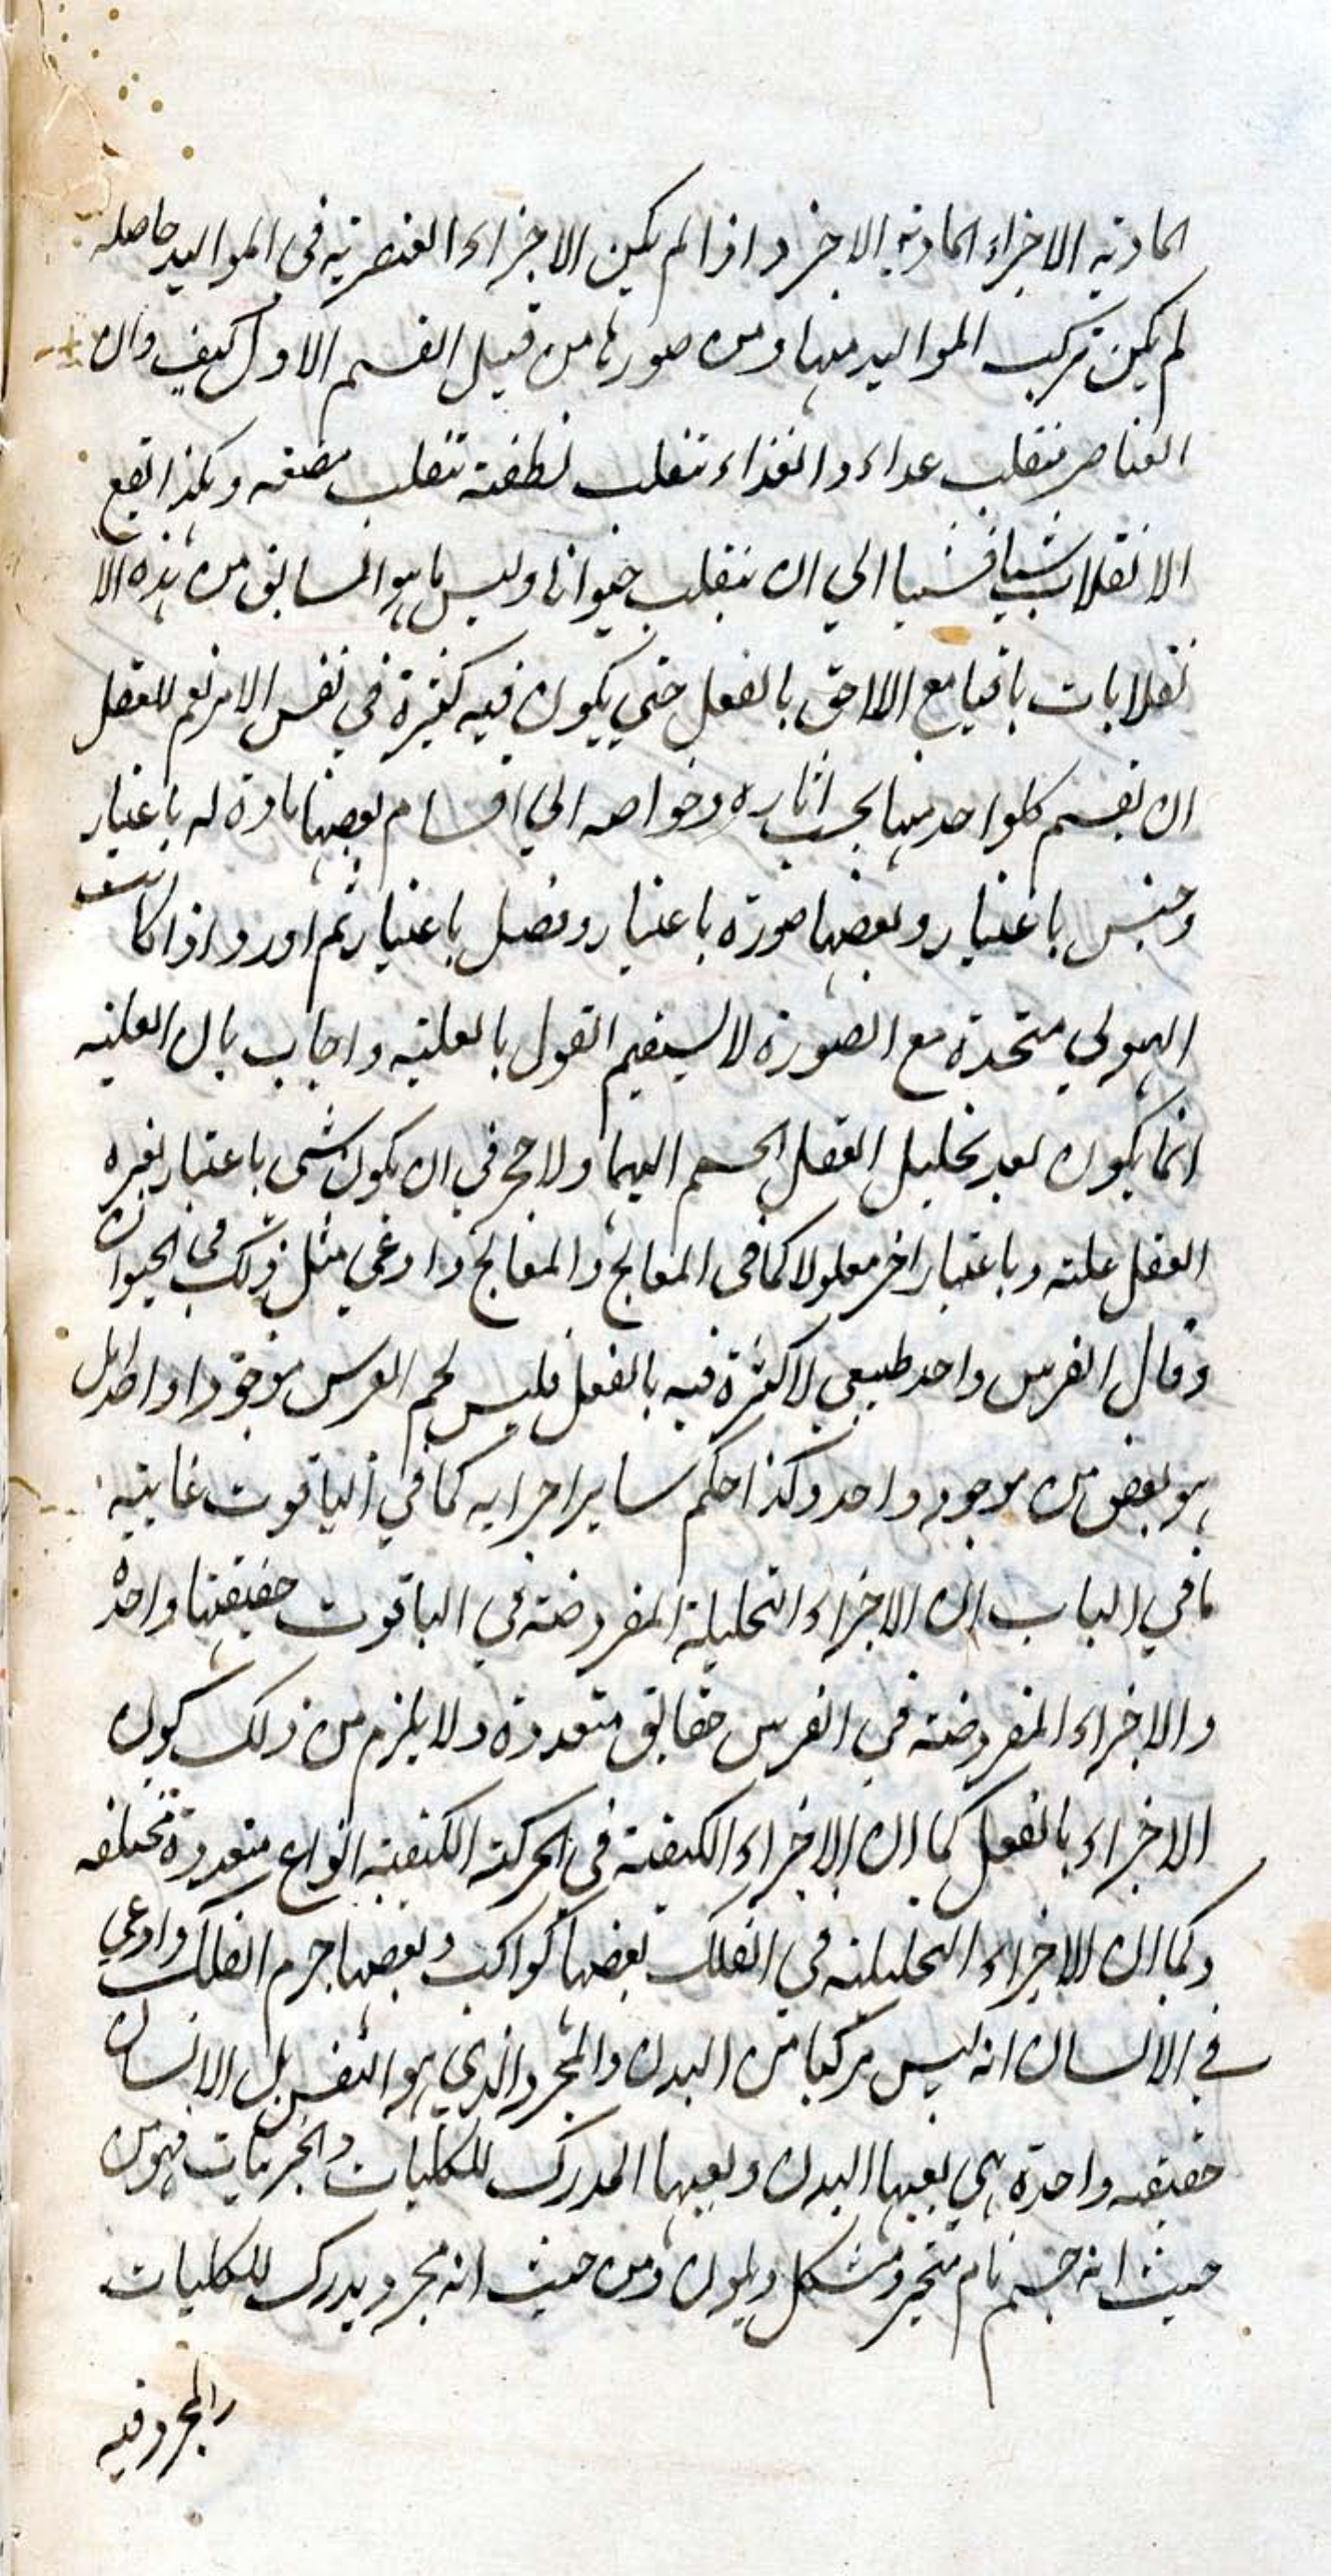 المادية الاجزاء المادية الاخر واذا لم يكن الاجزاء العنصرية في المواليد حاصله
لم يكن تركب المواليد منها ومن صورها من قبيل القسم الاول كيف وان
العناصر تنقلب غداء والغذاء تنقلب نطفة تنقلب مضغه وهكذا تقع
الانقلاب شيا فشيا الي ان ينقلب حيوانا وليس ما هو السابق من هذه الا
نقلابات باقيا مع اللاحق بالفعل حتي يكون فيه كثرة في نفس الامر نعم للعقل
ان يقسم كلواحد منها بحسب اثاره وخواصه الي اقسام بعضها مادة له باعتبار
وجنس باعتبار وبعضها صورة باعتبار وفصل باعتبار ثم اورد اذا كانت
الهيولي متحدة مع الصورة لا يستقيم القول بالعلية واجاب بان العلية
انما يكون بعد تحليل العقل الجسم اليهما ولا حجر في ان يكون شى باعتبار يعتبره
العقل علة وباعتبار اخر معلولا كما في المعالج والمعالج وادعي مثل ذلك في الحيوان
وقال الفرس واحد طبيعي لا كثرة فيه بالفعل فليس لحم الفرس موجودا واحدا بل
هو بعض من موجود واحد وكذا حكم ساير اجزايه كما في الياقوت غايته
ما في الباب ان الاجزاء التحليلة المفروضة في الياقوت حقيقتها واحدة
والاجزاء المفروضة في الفرس حقايق متعددة ولا يلزم من ذلك كون
الاجزاء بالفعل كما ان الاجزاء الكيفية في الحركة الكيفية انواع متعددة مختلفه
وكما ان الاجزاء التحليلية في الفلك بعضها كواكب وبعضها جرم الفلك وادعي
في الانسان انه ليس مركبا من البدن والمجرد الذي هو النفس بل الانسان
حقيقه واحدة هي بعينها البدن وبعينها المدرك للكليات والجزييات فهو من
حيث انه جسم نام متحيز ومتشكل ويلون ومن حيث انه مجرد يدرك للكليات
والمجرد فيه